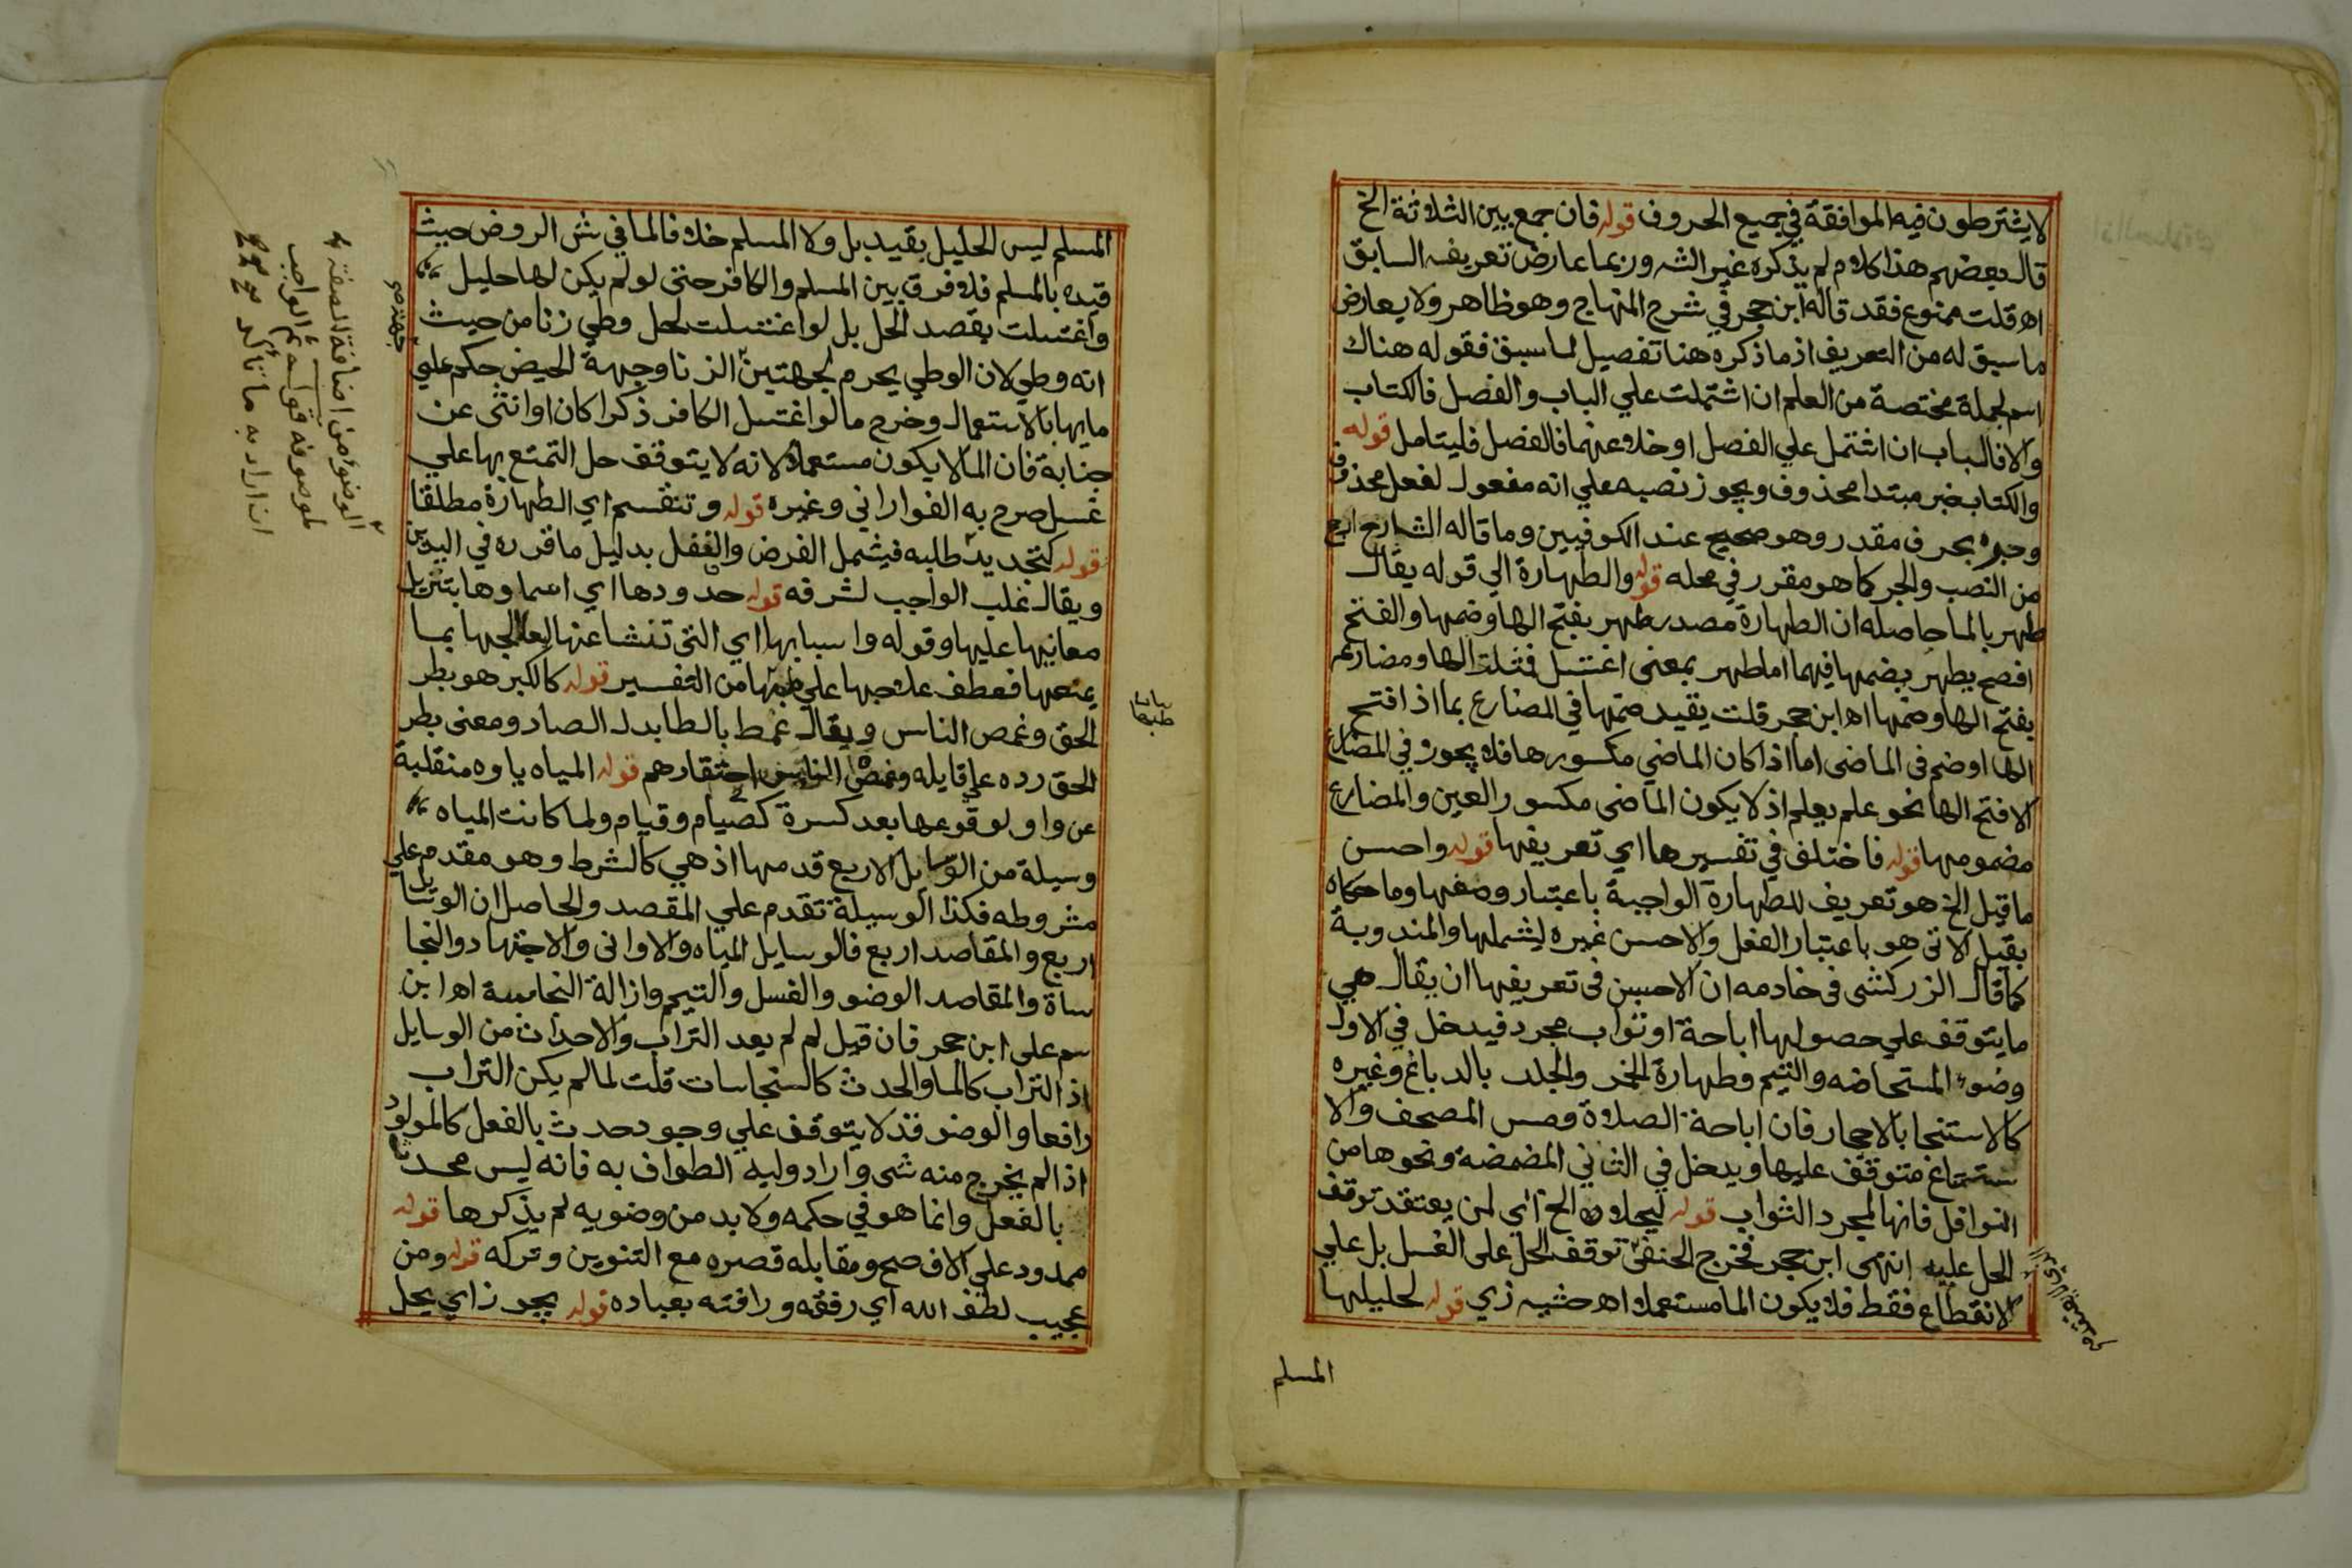 لا يشترطون فيه الموافقة في جميع الحروف قوله فان جمع بين الثلاثة الخ
قال بعضهم هذا كلام لم يذكره غير الشه وربما عارض تعريفه السابق
اه قلت ممنوع فقد قاله ابن حجر في شرح المنهاج وهو ظاهر ولا يعارض
ما سبق له من التعريف اذ ما ذكره هنا تفصيل لما سبق فقوله هناك
اسم لجملة مختصة من العلم ان اشتملت علي الباب والفصل فالكتاب
والا فالباب ان اشتمل علي الفصل او خلا عنهما فالفصل فليتامل قوله
والكتاب خبر مبتدا محذوف ويجوز نصبه علي انه مفعول لفعل محذوف
وجره بحرف مقدر وهو صحيح عند الكوفيين وما قاله الشارح ارجح
من النصب والجر كما هو مقرر في محله قوله والطهارة الي قوله يقال
طهر بالما حاصله ان الطهارة مصدر طهر بفتح الها وضمها والفتح
افصح يطهر بضمها فيهما اما طهر بمعنى اغتسل فمثلث الها ومضارعه
بفتح الها وضمها اه ابن حجر قلت يقيد ضمها في المضارع بما اذا فتح
الها او ضم في الماضى اما اذا كان الماضي مكسورها فلا يجوز في المضارع
الا فتح الها نحو علم يعلم اذ لا يكون الماضى مكسور العين والمضارع
مضمومها قوله فاختلف في تفسيرها اي تعريفها قوله واحسن
ما قيل الخ هو تعريف للطهارة الواجبة باعتبار وصفها وما حكاه
بقيل الاتى هو باعتبار الفعل والاحسن غيره ليشملها والمندوبة
كما قال الزركشى فى خادمه ان الاحسن فى تعريفها ان يقال هي
ما يتوقف علي حصولها اباحة او ثواب مجرد فيدخل في الاول
وضوء المستحاضه والتيم وطهارة الخمر والجلد بالدباغ وغيره
كالاستنجا بالاحجار فان اباحة الصلاة ومس المصحف والا
ستمتاع متوقف عليها ويدخل في الثاني المضمضة ونحوها من
النوافل فانها لمجرد الثواب قوله ليحلان الخ اي لمن يعتقد توقف
الحل عليه انتهى ابن حجر فخرج الحنفى توقف الحل على الغسل بل علي
الانقطاع فقط فلا يكون الما مستعملا اه حشيه زي قوله لحليلها
المسلم
المسلم ليس الحليل بقيد بل ولا المسلم خلافا لما في شر الروض حيث
قيده بالمسلم فلا فرق بين المسلم والكافر حتى لو لم يكن لها حليل
واغتسلت بقصد الحل بل لو اغتسلت لحل وطي زنا من حيث
انه وطي لان الوطي يحرم لجهتين الزنا وجهة الحيض حكم علي
مايها بالاستعمال وخرج ما لو اغتسل الكافر ذكرا كان او انثى عن
جنابة فان الما لا يكون مستعملا لانه لا يتوقف حل التمتع بها علي
غسل صرح به الفوراني وغيره قوله وتنقسم اي الطهارة مطلقا
قوله كتجديد طلبه فيشمل الفرض والنفل بدليل ما قرره في اليدين
ويقال غلب الواجب لشرفه قوله حدودها اي اسماوها بتنزيل
معانيها عليها وقوله واسبابها اي التى تنشا عنها لعالجها بما
يمنعها فعطف علاجها علي من التفسير قوله كالكبر هو بطر
الحق وغمص الناس ويقال غمط بالطا بدل الصاد ومعنى بطر
الحق رده علي قايله وغمص الناس احتقارهم قوله المياه ياوه منقلبة
عن واو لوقوعها بعد كسرة كصيام وقيام ولما كانت المياه
وسيلة من الوسايل الاربع قدمها اذ هي كالشرط وهو مقدم علي
مشروطه فكذا الوسيلة تقدم علي المقصد والحاصل ان الوسايل
اربع والمقاصد اربع فالوسايل المياه والاوانى والاجتهاد والنجا
ساة والمقاصد الوضو والغسل والتيم وازالة النجاسة اه ابن
سم على ابن حجر فان قيل لم لم يعد التراب والاحداث من الوسايل
اذ التراب كالما والحدث كالنجاسات قلت لما لم يكن التراب
رافعا والوضو قد لا يتوقف علي وجود حدث بالفعل كالمولود
اذا لم يخرج منه شى واراد وليه الطواف به فانه ليس محدثا
بالفعل وانما هو في حكمه ولا بد من وضويه لم يذكرها قوله
ممدود علي الافصح ومقابله قصره مع التنوين وتركه قوله ومن
عجيب لطف الله اي رفقه ورافته بعباده قوله يجوز اي يحل
الوضو من اضافة الصفة
لموصوفه قوله ثم الواجب
ان اراد به ما تأكد